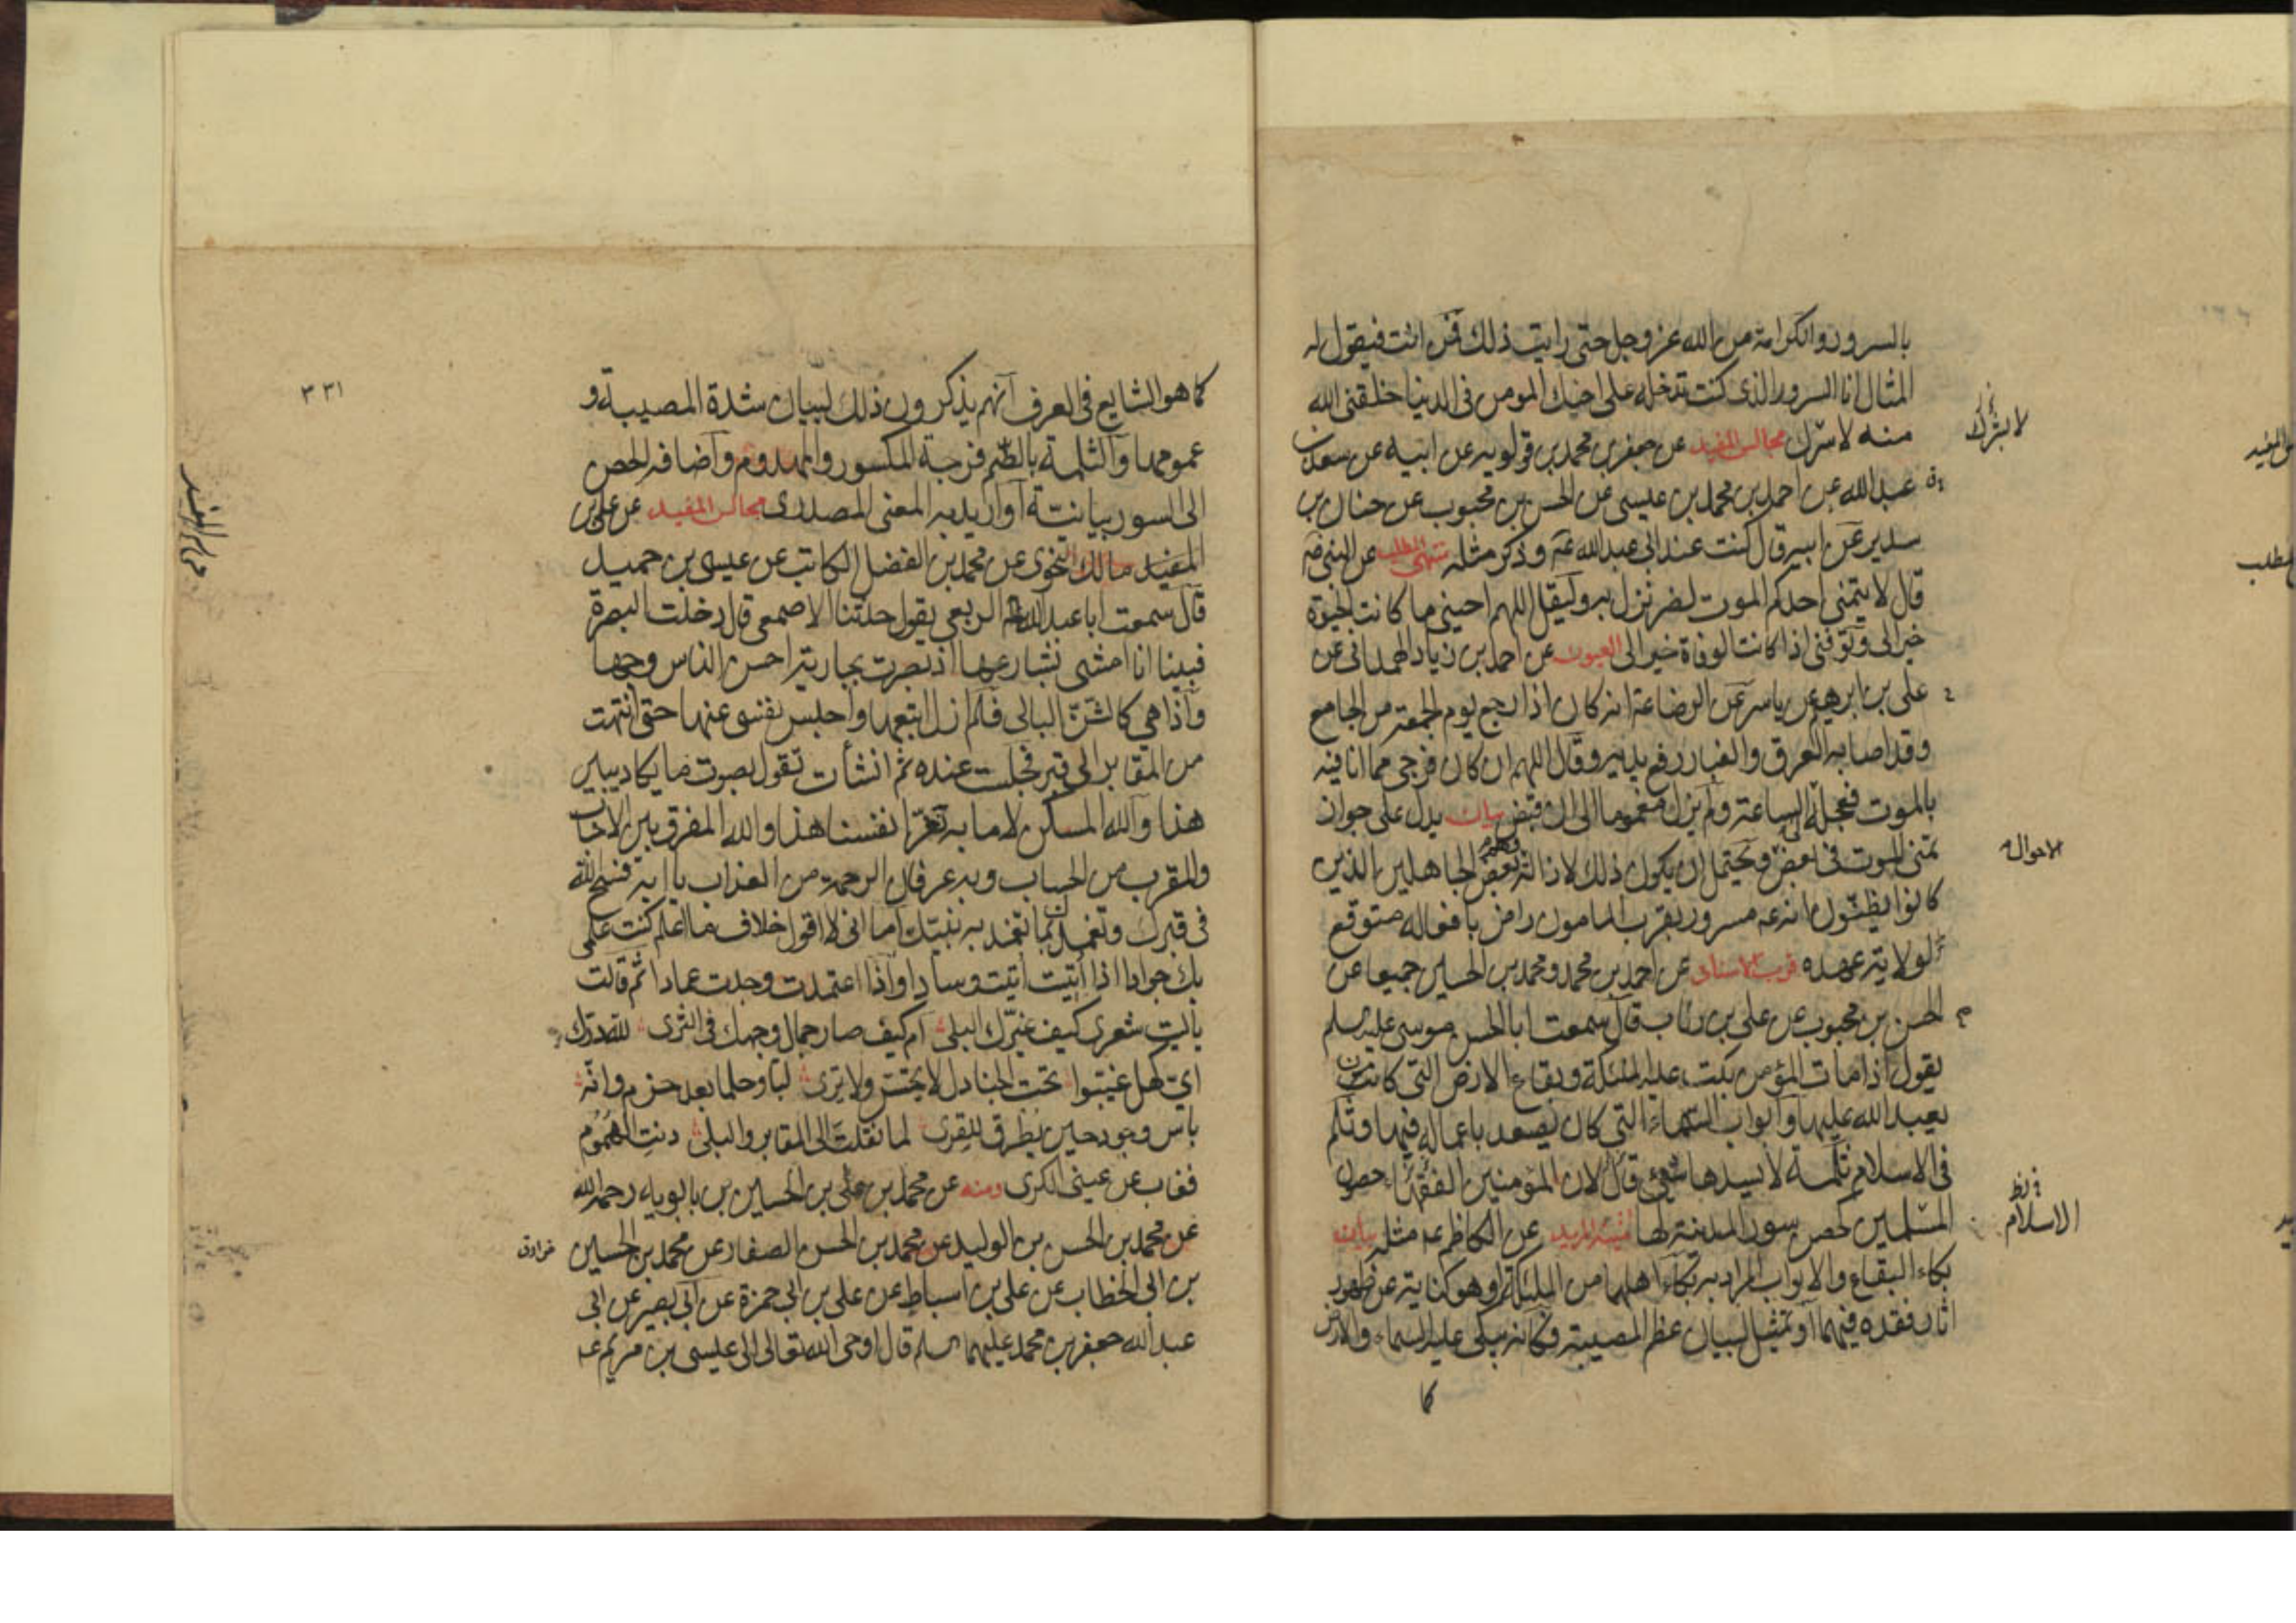 بالسرور والكرامة من الله عز وجل حتى رايت ذلك فمن انت فيقول له
المثال انا السرور الذى كنت تدخله على اخيك المومن فى الدنيا خلقنى الله
منه لاسرك مجالس المفيد عن جعفر بن محمد بن قولويه عن ابيه عن سعد بن
عبد الله عن احمد بن محمد بن عيسى عن الحسن بن محبوب عن حنان بن
سدير عن ابيه قال كنت عند ابى عبد الله عم وذكر مثله منتهى المطلب عن النبى ص
قال لا يتمنى احدكم الموت لضر نزل به وليقل اللهم احينى ما كانت الحيوة
خيرا لى وتوفنى اذا كانت الوفاة خيرا لى العيون عن احمد بن زياد الهمدانى عن
على بن ابرهيم عن ياسر عن الرضا ع انه كان اذا رجع يوم الجمعة من الجامع
وقد اصابه العرق والغبار رفع يديه وقال اللهم ان كان فرجى مما انا فيه
بالموت فعجله الى الساعة ولم يزل مغموما الى ان قبض بيان يدل على جواز
تمنى الموت فى بعض ويحتمل ان يكون ذلك لازالة وهم بعض الجاهلين الذين
كانوا يظنون انه ع مسرور بقرب المامون راض بافعاله متوقع
لولاية عهده قرب الاسناد عن احمد بن محمد ومحمد بن الحسين جميعا عن
الحسن بن محبوب عن على بن رئاب قال سمعت ابا الحسن موسى عليه السلم
يقول اذا مات المؤمن بكت عليه الملئكة وبقاع الارض التى كان
يعبد الله عليها وابواب السماء التى كان يصعد باعماله فيها وثلم
فى الاسلام ثلمة لا يسدها شئ قال لان المؤمنين الفقهاء حصون
المسلمين كحصن سور المدينة لها منية المريد عن الكاظم ع مثله بيان
بكاء البقاع والابواب المراد به بكاء اهلها من الملئكة او هو كناية عن ظهور
اثار فقده فيهما او تمثيل لبيان عظم المصيبة فكانه يبكى عليه السماء والارض
كما
لا بشرك
الاحوال
الاسلام
٣٣١
كما هو الشايع فى العرف انهم يذكرون ذلك لبيان شدة المصيبة و
عمومها والثلمة بالضم فرجة المكسور والمهدوم واضافة الحصن
الى السور بيانية او اريد به المعنى المصدرى مجالس المفيد عن على بن
مالك النحوى عن محمد بن الفضل الكاتب عن عيسى بن حميد
قال سمعت ابا عبد الله الربعى يقول حدثنا الاصمعى قال دخلت البصرة
فبينا انا امشى بشارعها اذ بصرت بجارية احسن الناس وجها
واذا هى كالشن البالى فلم ازل اتبعها واحبس نفسى عنها حتى انتهت
من المقابر الى قبر فجلست عنده ثم انشأت تقول بصوت ما يكاد يبين
هذا والله المسكن لا ما به نغر انفسنا هذا والله المفرق بين الاحباب
والمقرب من الحساب وبه عرفان الرحمة من العذاب يا ابه فسح الله
فى قبرك وتغمدك بما تغمد به نبيك اما انى لا اقول خلاف ما اعلم كنت علمى
بك جوادا اذا اتيت اتيت وسادا واذا اعتمدت وجدت عمادا ثم قالت
يا ليت شعرى كيف غيرك البلى ام كيف صار جمال وجهك فى الثرى لله درك
اى كهل غيبوا تحت الجنادل لا تحس ولا ترى لبا وحلما بعد حزم زانه
باس وجود حين يطرق للقرى لما نقلت الى المقابر والبلى دنت الهموم
فغاب عن عينى الكرى ومنه عن محمد بن على بن الحسين بن بابويه رحمه الله
عن محمد بن الحسن بن الوليد عن محمد بن الحسن الصفار عن محمد بن الحسين
بن ابى الخطاب عن على بن اسباط عن على بن ابى حمزة عن ابى بصير عن ابى
عبد الله جعفر بن محمد عليهما السلم قال اوحى الله تعالى الى عيسى بن مريم ع
مجالس المفيد